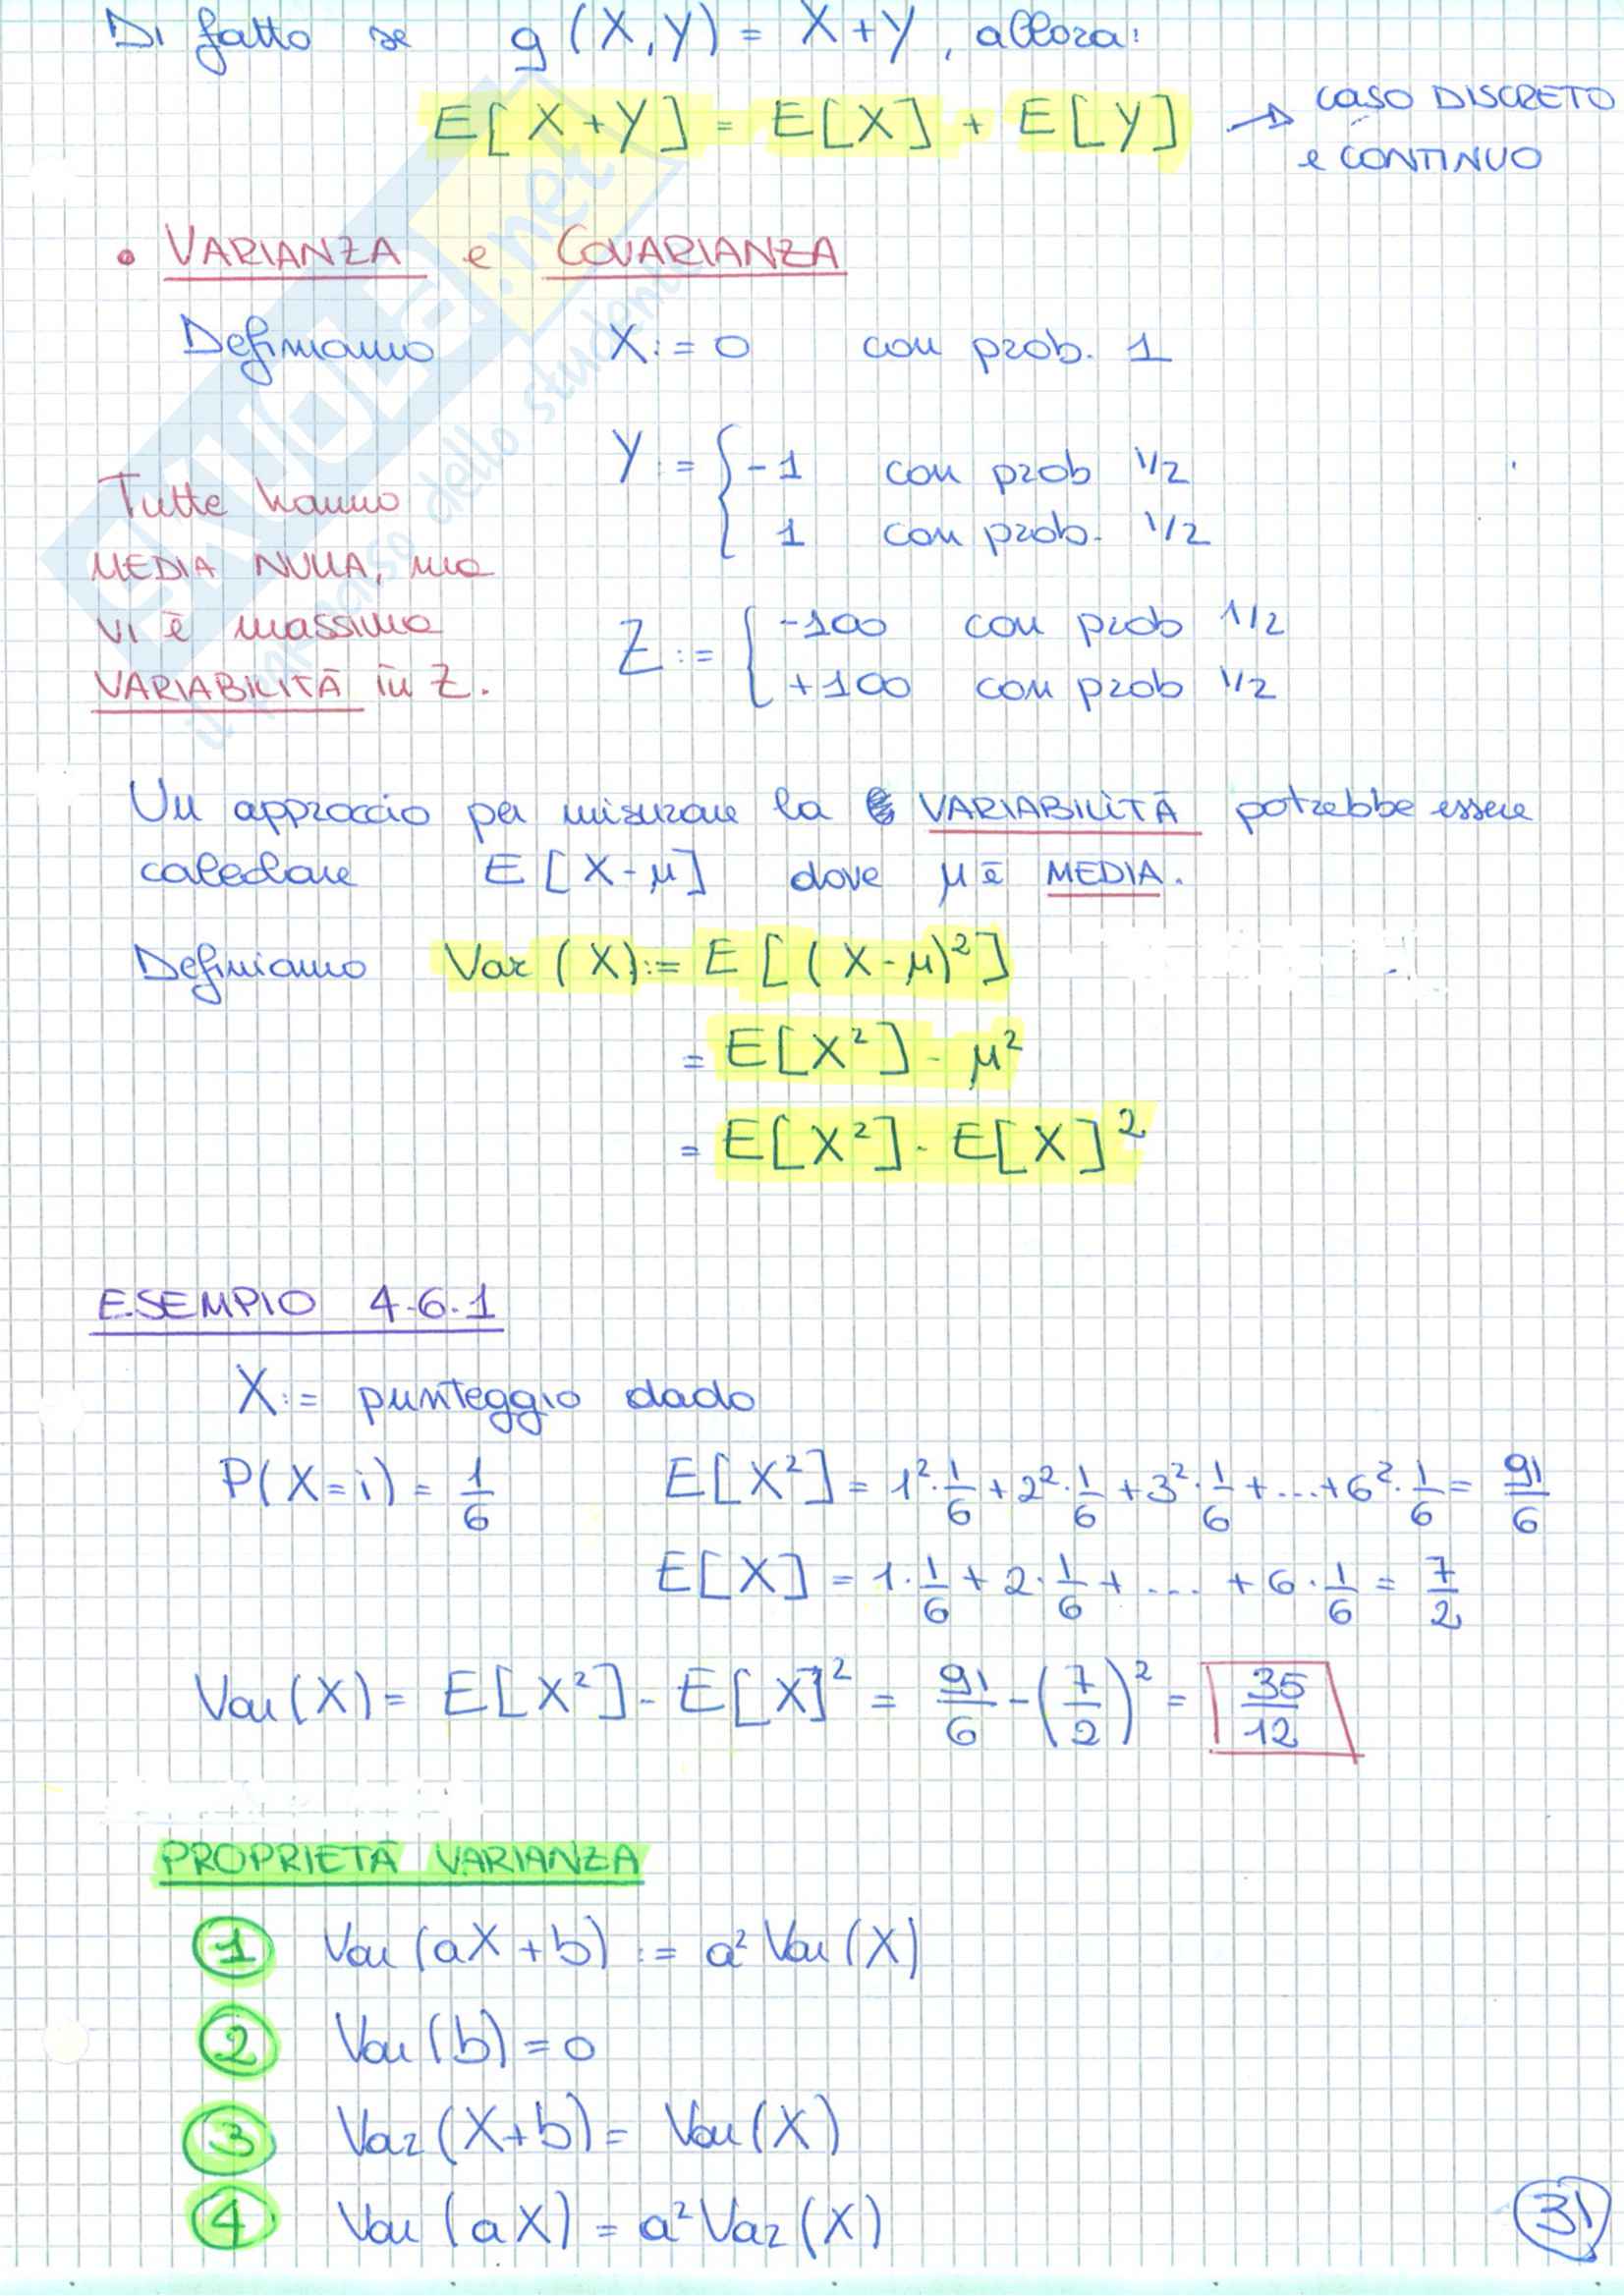 Di fatto se g(X,Y) = X+Y, allora:
E[X+Y] = E[X] + E[Y] → CASO DISCRETO
e CONTINUO
• VARIANZA e COVARIANZA
Definiamo X := 0 con prob. 1
Y := { -1 con prob 1/2
1 con prob. 1/2
Tutte hanno
MEDIA NULLA, ma
vi è massima
VARIABILITÀ in Z.
Z := { -100 con prob 1/2
+100 con prob 1/2
Un approccio per misurare la VARIABILITÀ potrebbe essere
calcolare E[X-μ] dove μ è MEDIA.
Definiamo Var(X) := E[(X-μ)²]
= E[X²] - μ²
= E[X²] - E[X]²
ESEMPIO 4.6.1
X := punteggio dado
P(X=i) = 1/6 E[X²] = 1²·1/6 + 2²·1/6 + 3²·1/6 + ... + 6²·1/6 = 91/6
E[X] = 1·1/6 + 2·1/6 + .... + 6·1/6 = 7/2
Var(X) = E[X²] - E[X]² = 91/6 - (7/2)² = 35/12
PROPRIETÀ VARIANZA
1 Var(aX+b) := a² Var(X)
2 Var(b) = 0
3 Var(X+b) = Var(X)
4 Var(aX) = a² Var(X)
31
SKUOLA.net
il paradiso dello studente